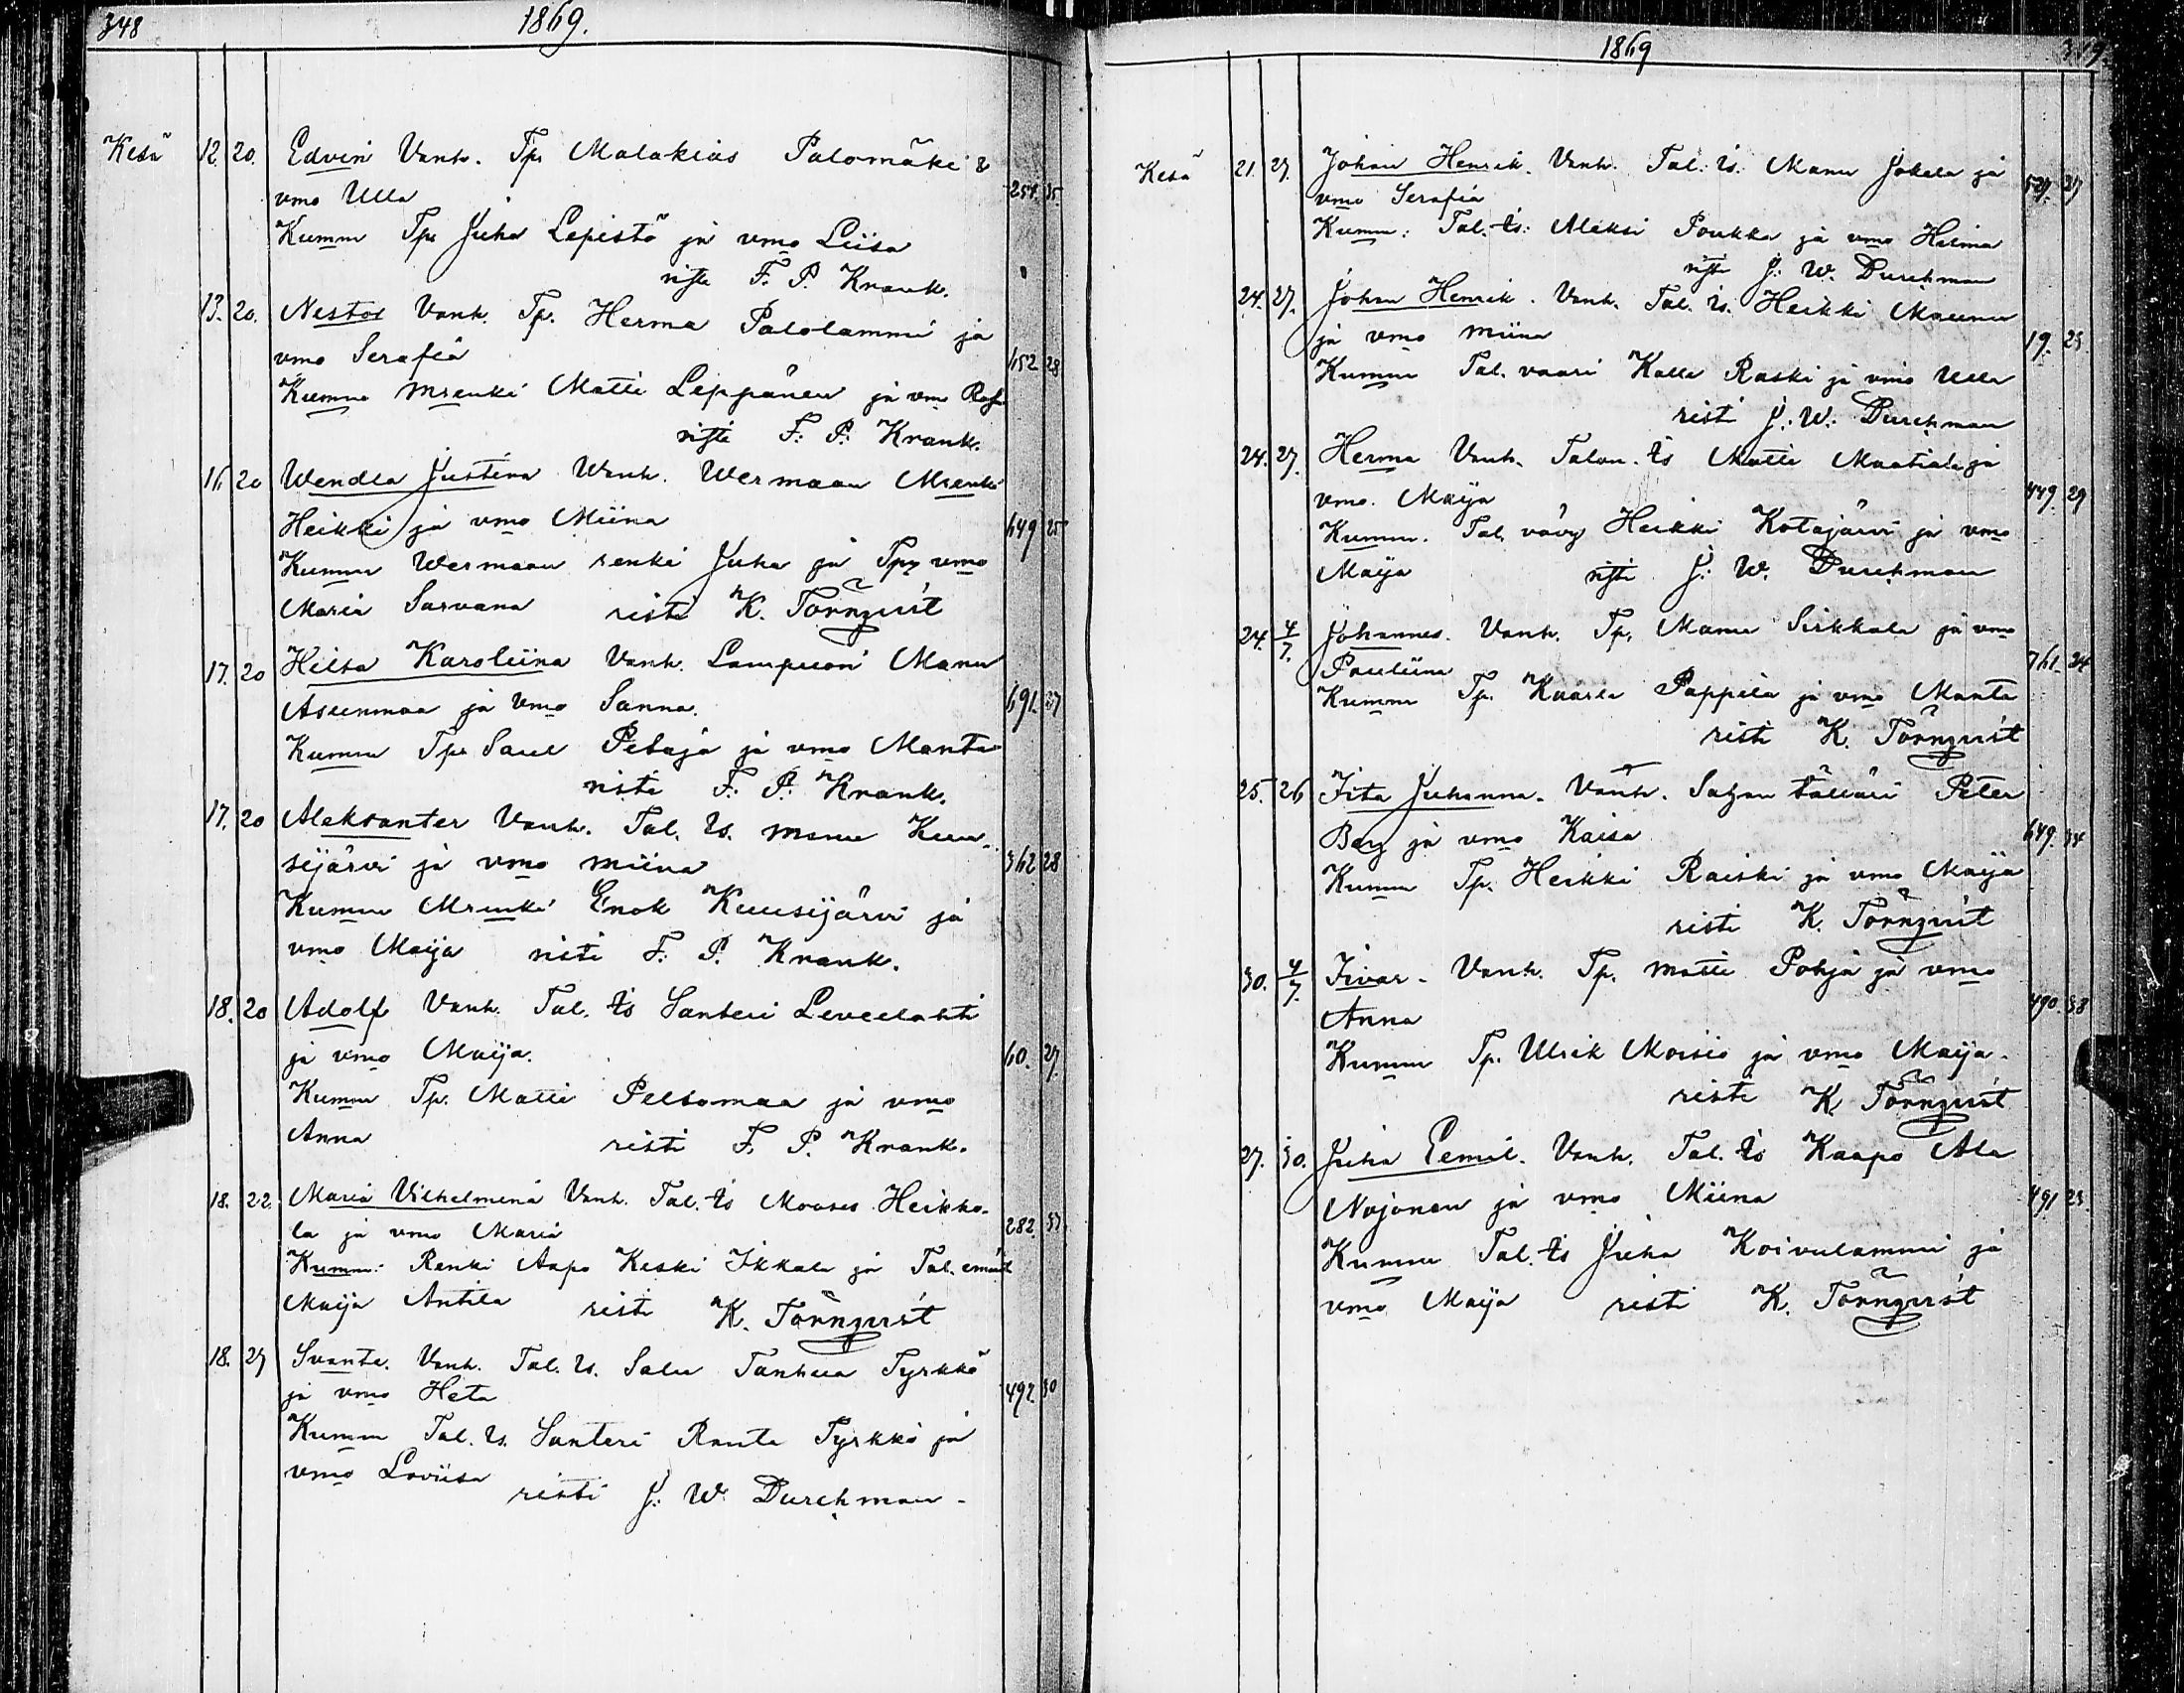 348
1869.
Kesä 12. 20. Edvin Vanh. Tp. Malakias Palomäki &
vmo Ulla 251. 35.
Kumm Tp. Juha Lepistö ja vmo Liisa
risti F. P. Krank.
13. 20. Nestor Vanh. Tp. Herma Palolammi ja
vmo Serafia 652 28
Kumm Mrenki Matti Leppänen ja vmo
risti F. P. Krank.
16 20 Wendla Justina Vanh. Wermaan Mrenki
Heikki ja vmo Miina 649 25
Kumm Wermaan renki Juha ja Tp. vmo
Maria Sarvana risti K. Törnqvist
17. 20 Hilta Karoliina Vanh. Lampuori Manu
Asunmaa ja vmo Sanna. 691. 37
Kumm Tp. Saul Petäjä ja vmo Manta
risti F. P. Krank.
17. 20 Aleksanter Vanh. Tal. ts. Manu Kuu-
sijärvi ja vmo Miina 362 28
Kumm Mrenki Enok Kuusijärvi ja
vmo Maija risti F. P. Krank.
18. 20 Adolf Vanh. Tal. ts Santeri Leveelahti
ja vmo Maija. 60. 27.
Kumm Tp. Matti Peltomaa ja vmo
Anna risti F. P. Krank.
18. 22. Maria Vilhelmina Vanh. Tal. ts Mooses Heikki-
la ja vmo Maria 282. 37.
Kumm: Renki Aapo Keski Ikkala ja Tal. emänt
Maija Antila risti K. Törnqvist
18. 27 Svante. Vanh. Tal. ts. Salu Tanhua Tyrkkö
ja vmo Heta 492. 30
Kumm Tal. ts. Santeri Ranta Tyrkkö ja
vmo Loviisa
risti J. W. Durchman.
1869
349.
Kesä 21. 27. Johan Henrik. Vanh. Tal. ts. Manu Jokela ja
vmo Serafia 527. 27
Kumm: Tal. ts. Aleksi Poukka ja vmo Helmia
risti J. W. Durchman
24. 27. Johan Henrik. Vanh. Tal. ts. Heikki Maunu
ja vmo Miina 19. 23
Kumm Tal. vaari Kalle Raski ja vmo Ulla
risti J. W. Durchman
24. 27. Herma Vanh. Talon. ts Matti Maatiala ja
vmo. Maija 449. 29
Kumm. Tal. vävy Heikki Kotajärvi ja vmo
Maija risti J. W. Durchman
24. 4/7. Johannes. Vanh. Tp. Manu Sirkkala ja vmo
Pauliina 761. 24
Kumm Tp. Kaarle Pappila ja vmo Manta
risti K. Törnqvist
25. 26 Iita Juhanna. Vanh. Sahan tälläri Peter
Berg ja vmo Kaisa 649. 34
Kumm Tp. Heikki Raiski ja vmo Maija
risti K. Törnqvist
30. 4/7. Iivar. Vanh. Tp. Matti Pohja ja vmo
Anna 490. 38
Kumm Tp. Ulrik Moisio ja vmo Maija.
risti K. Törnqvist
27. 30. Juha Eemil. Vanh. Tal. ts Kaapo Ala
Nojonen ja vmo Miina 491 23.
Kumm Tal. ts Juha Koivulammi ja
vmo Maija risti K. Törnqvist